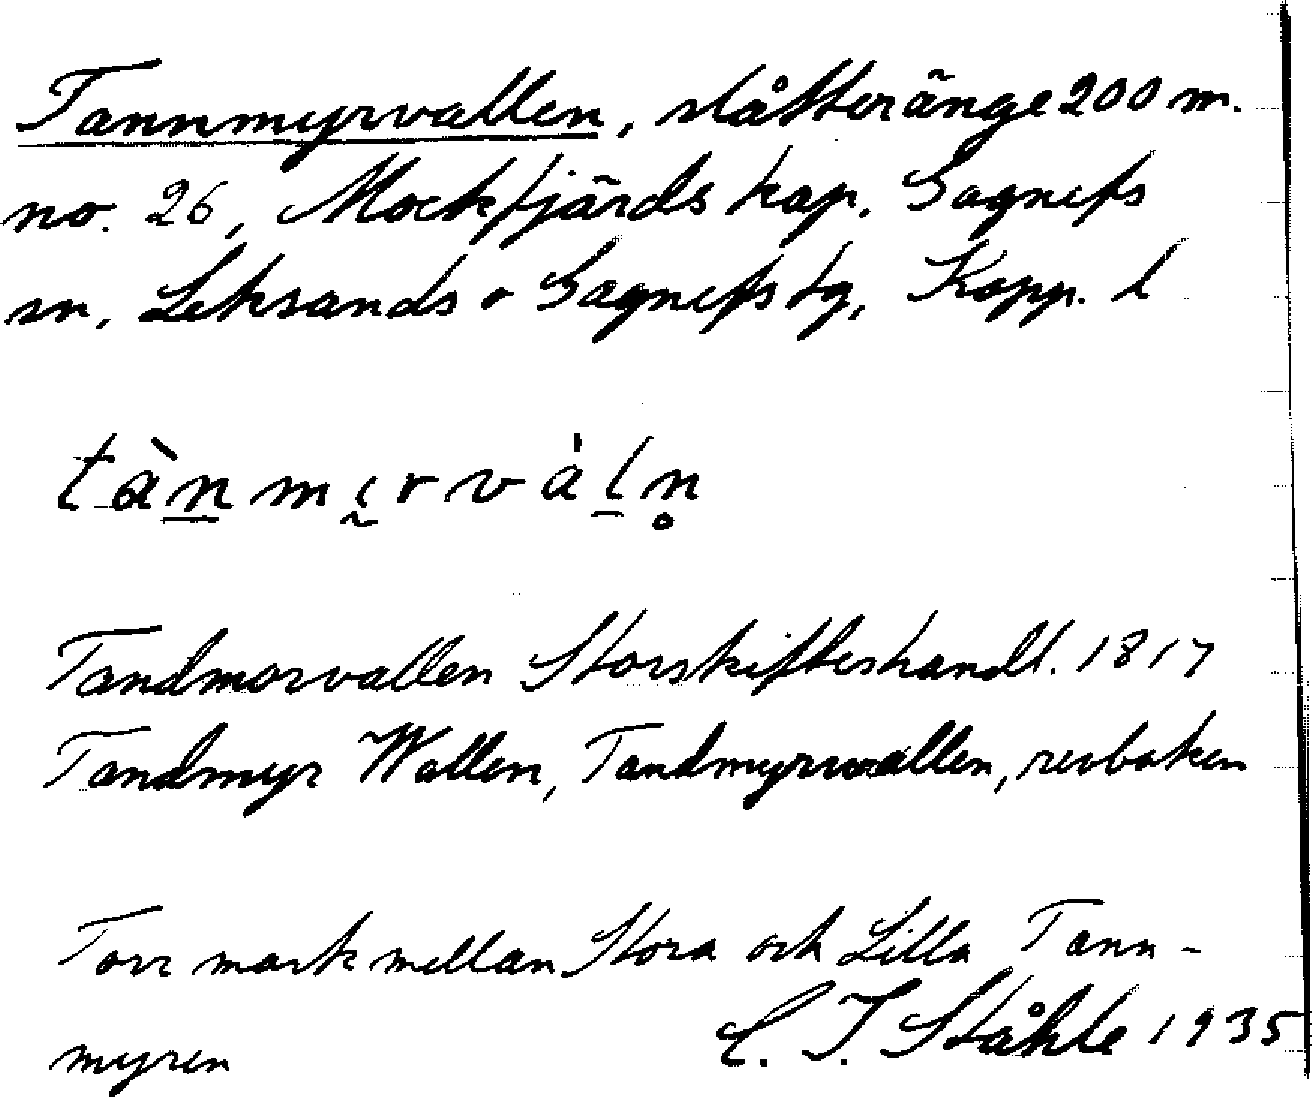 Tannmyrvallen, slåtteränge 200 m.
no. 26, Mockfjärds kap. Gagnefs
sn, Leksands o Gagnefs tg, Kopp. l
tàn̲mɩ̰rvàl̲n̥
Tandmorvallen Storskifteshandl. 1817
Tandmyr Wallen, Tandmyrwallen, revboken
Torr mark mellan Stora och Lilla Tann-
myren
C. I. Ståhle 1935